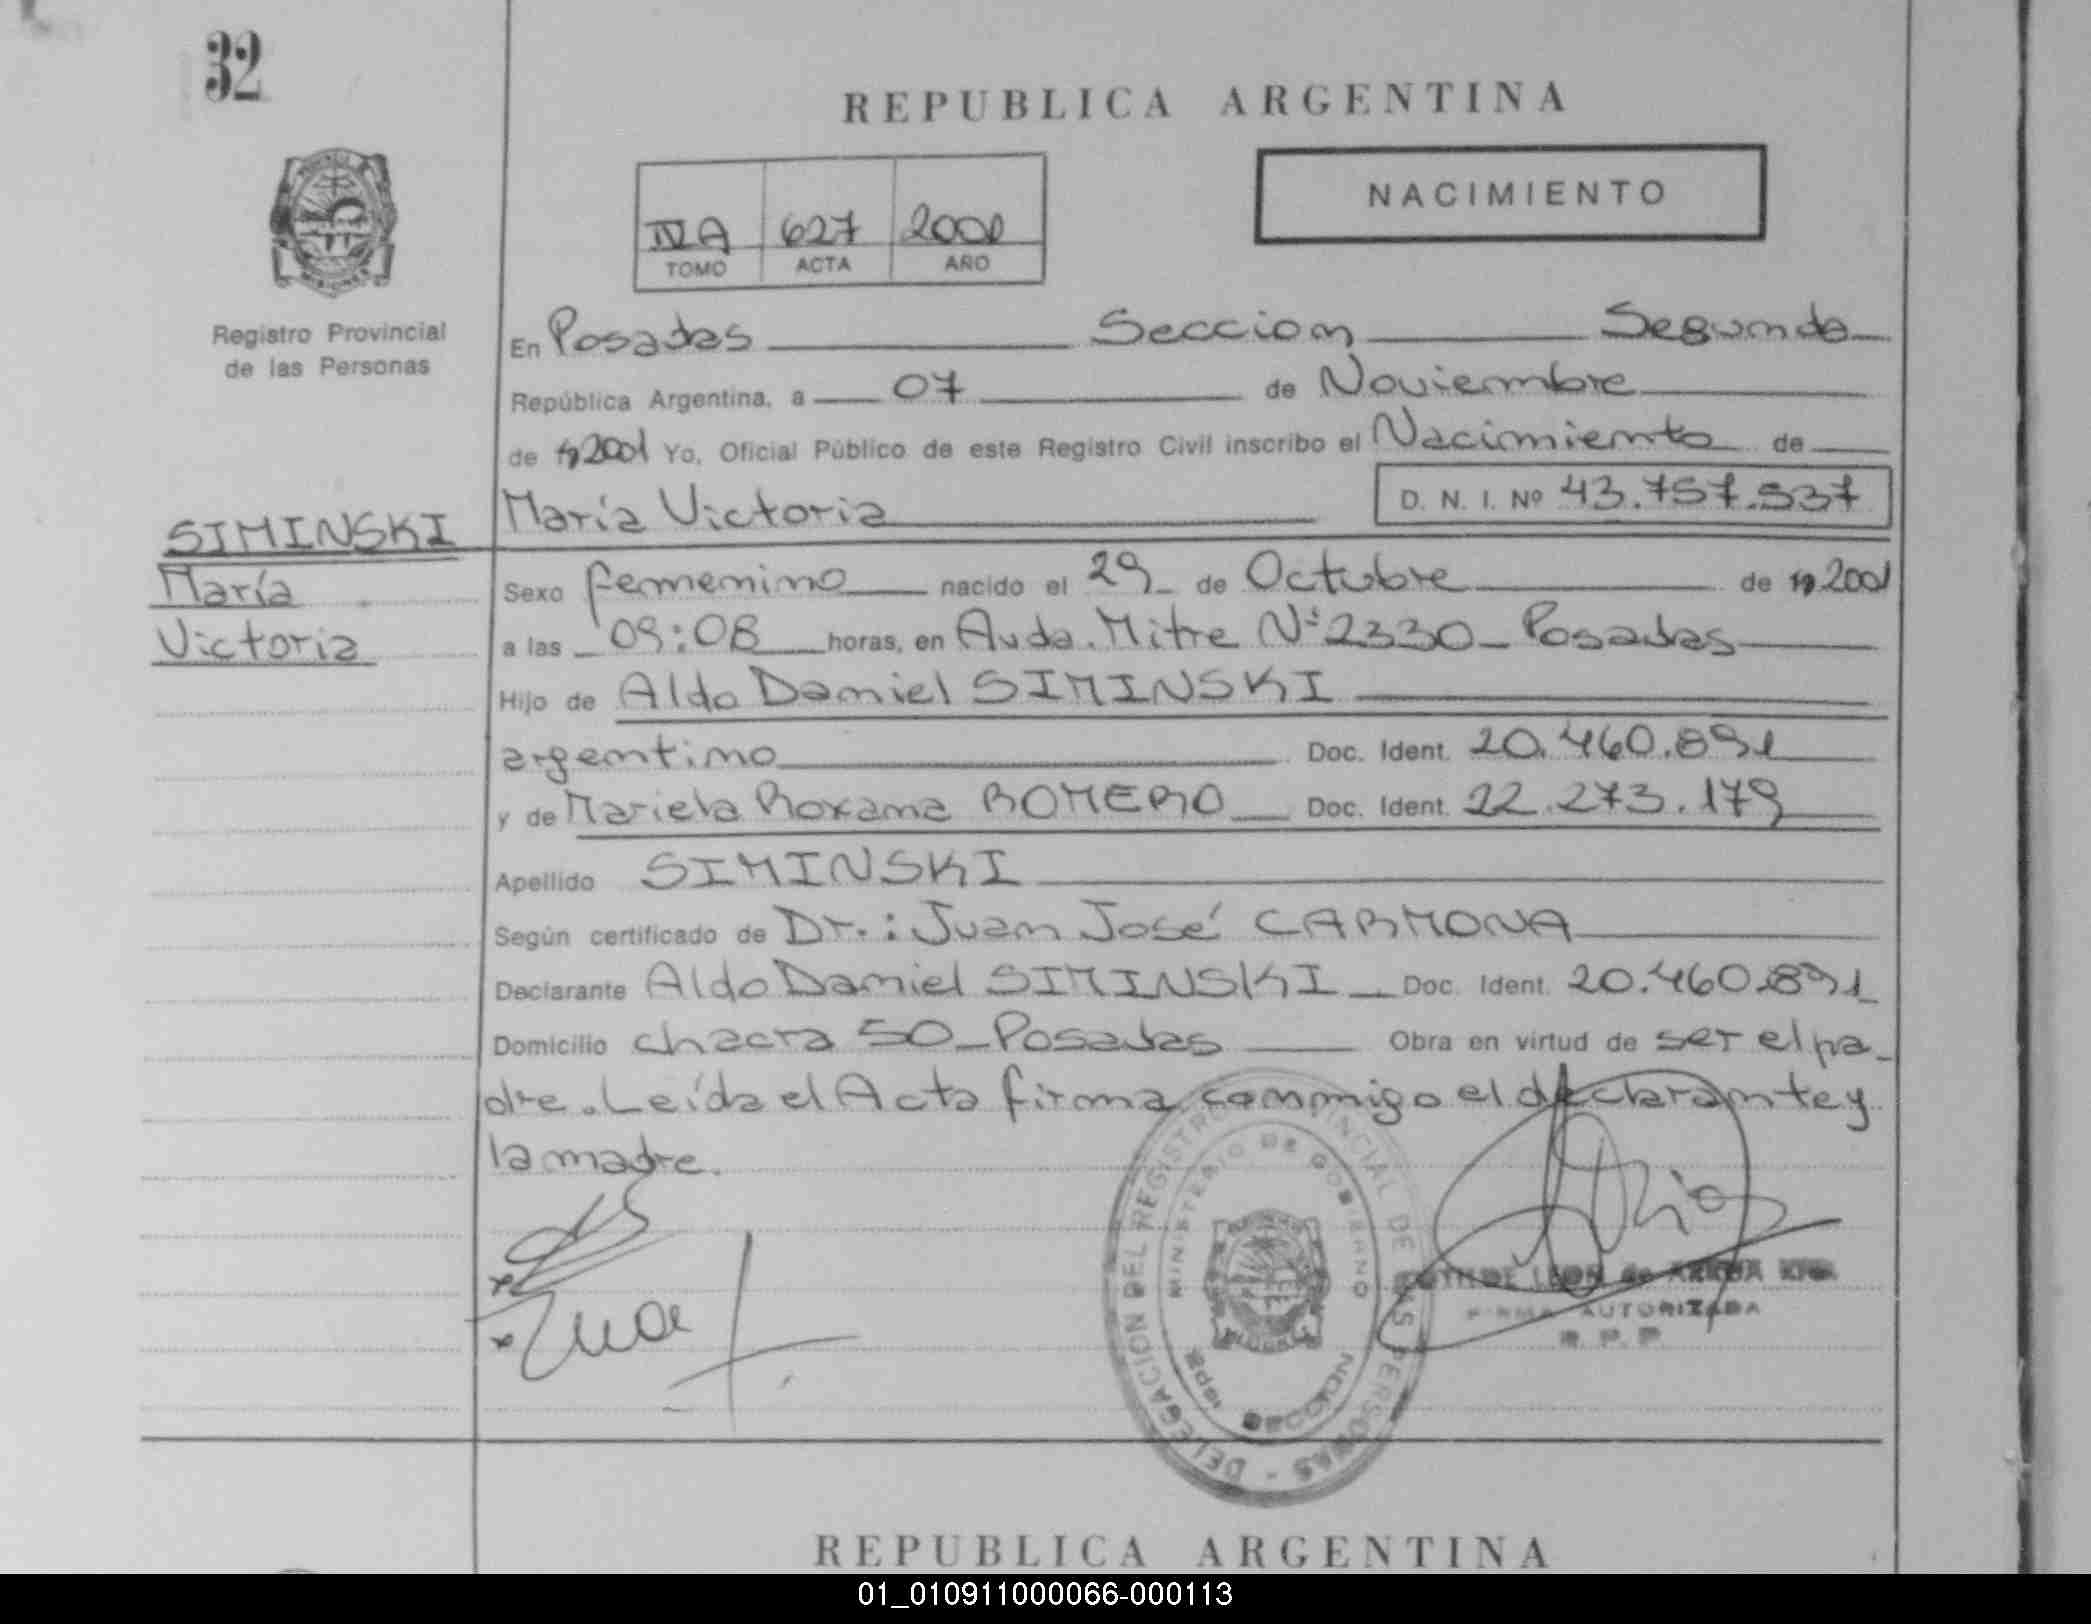 32
REPUBLICA ARGENTINA
NACIMIENTO
IVA 627 2001
TOMO ACTA AÑO
Registro Provincial
de las Personas
En Posadas Seccion Segunda
República Argentina, a 07 de Noviembre
de 19 2001 Yo, Oficial Público de este Registro Civil inscribo el Nacimiento de
María Victoria D. N. I. Nº 43.757.537
SIMINSKI
María
Victoria
Sexo femenino nacido el 29 de Octubre de 19 2001
a las 09:08 horas, en Avda. Mitre Nº 2330 - Posadas
Hijo de Aldo Daniel SIMINSKI
argentino Doc. Ident. 20.460.891
y de Mariela Roxana ROMERO Doc. Ident. 22.273.179
Apellido SIMINSKI
Según certificado de Dr.: Juan José CARMONA
Declarante Aldo Daniel SIMINSKI Doc. Ident. 20.460.891
Domicilio chacra 50 - Posadas Obra en virtud de ser el pa-
dre. Leída el Acta firma conmigo el declarante y
la madre.
DELEGACION DEL REGISTRO PROVINCIAL DE LAS PERSONAS
MINISTERIO DE GOBIERNO
SECCION
LEON de
FIRMA AUTORIZADA
R. P. P.
REPUBLICA ARGENTINA
01_010911000066-000113